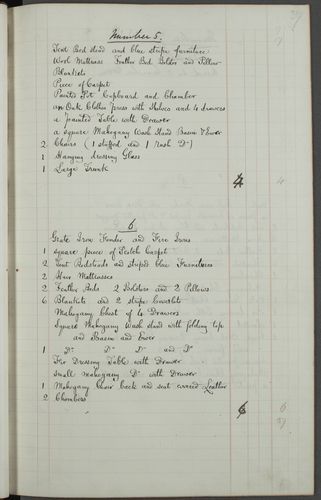 Number 5.
Tent Bed stead and blue stripe furniture
Wool Mattrass Feather Bed Bolster and Pillow
Blankets
Piece of Carpet
Painted Pot Cupboard and Chamber
an Oak Clothes press with Shelves and 4 drawers
a painted Table with Drawer
a square Mahogany Wash Stand Basin & Ewer
2 Chairs (1 stuffed and 1 rush Do)
1 Hanging dressing Glass
1 Large Trunk
4 4
6
Grate Iron Fender and Fire Irons
1 square piece of Scotch Carpet
2 Tent Bedsteads and striped blue Furnitures
2 Hair Mattrasses
2 Feather Beds 2 Bolsters and 2 Pillows
6 Blankets and 2 stripe Coverlets
Mahogany Chest of 4 Drawers
Square Mahogany Wash stand with folding tops
and Basin and Ewer
1 Do Do Do and Do
Fir Dressing Table with Drawer
Small Mahogany Do with Drawer
1 Mahogany Chair back and seat covered Leather
2 Chambers
6 6